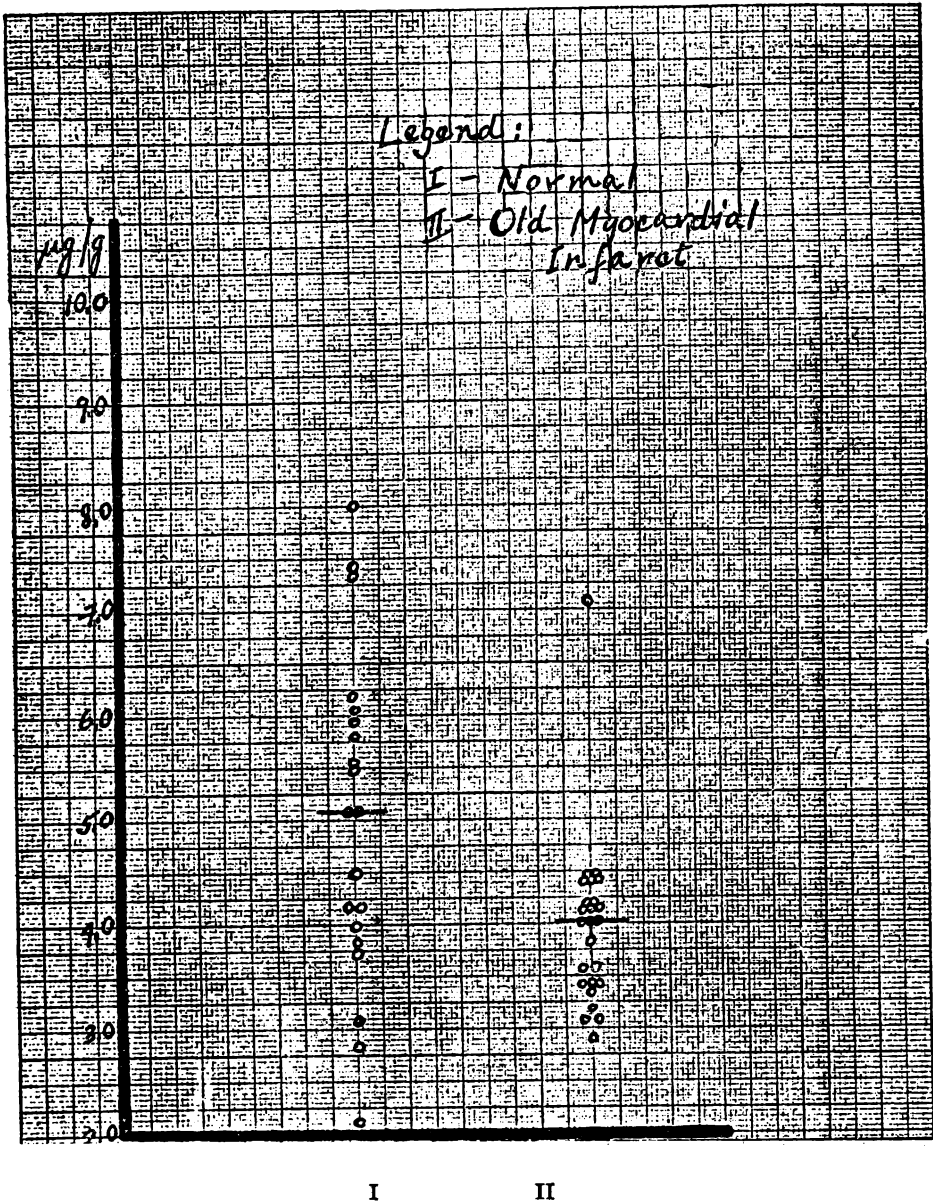 Legend :
I - Normal
II - Old Myocardial
Infarct
µg/g
10.0
9.0
8.0
7.0
6.0
5.0
4.0
3.0
2.0
I II